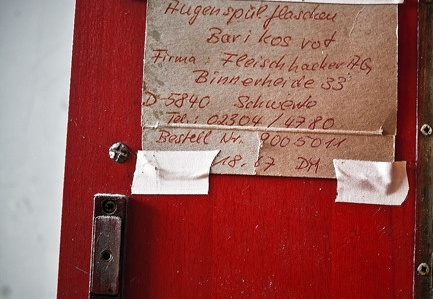 Augenspülflaschen
Barikos rot
Firma: Fleischhacker AG,
Binnerheide 33
D-5840 Schwerte
Tel.: 02304/4780
Bestell Nr. 9005011
18,67 DM